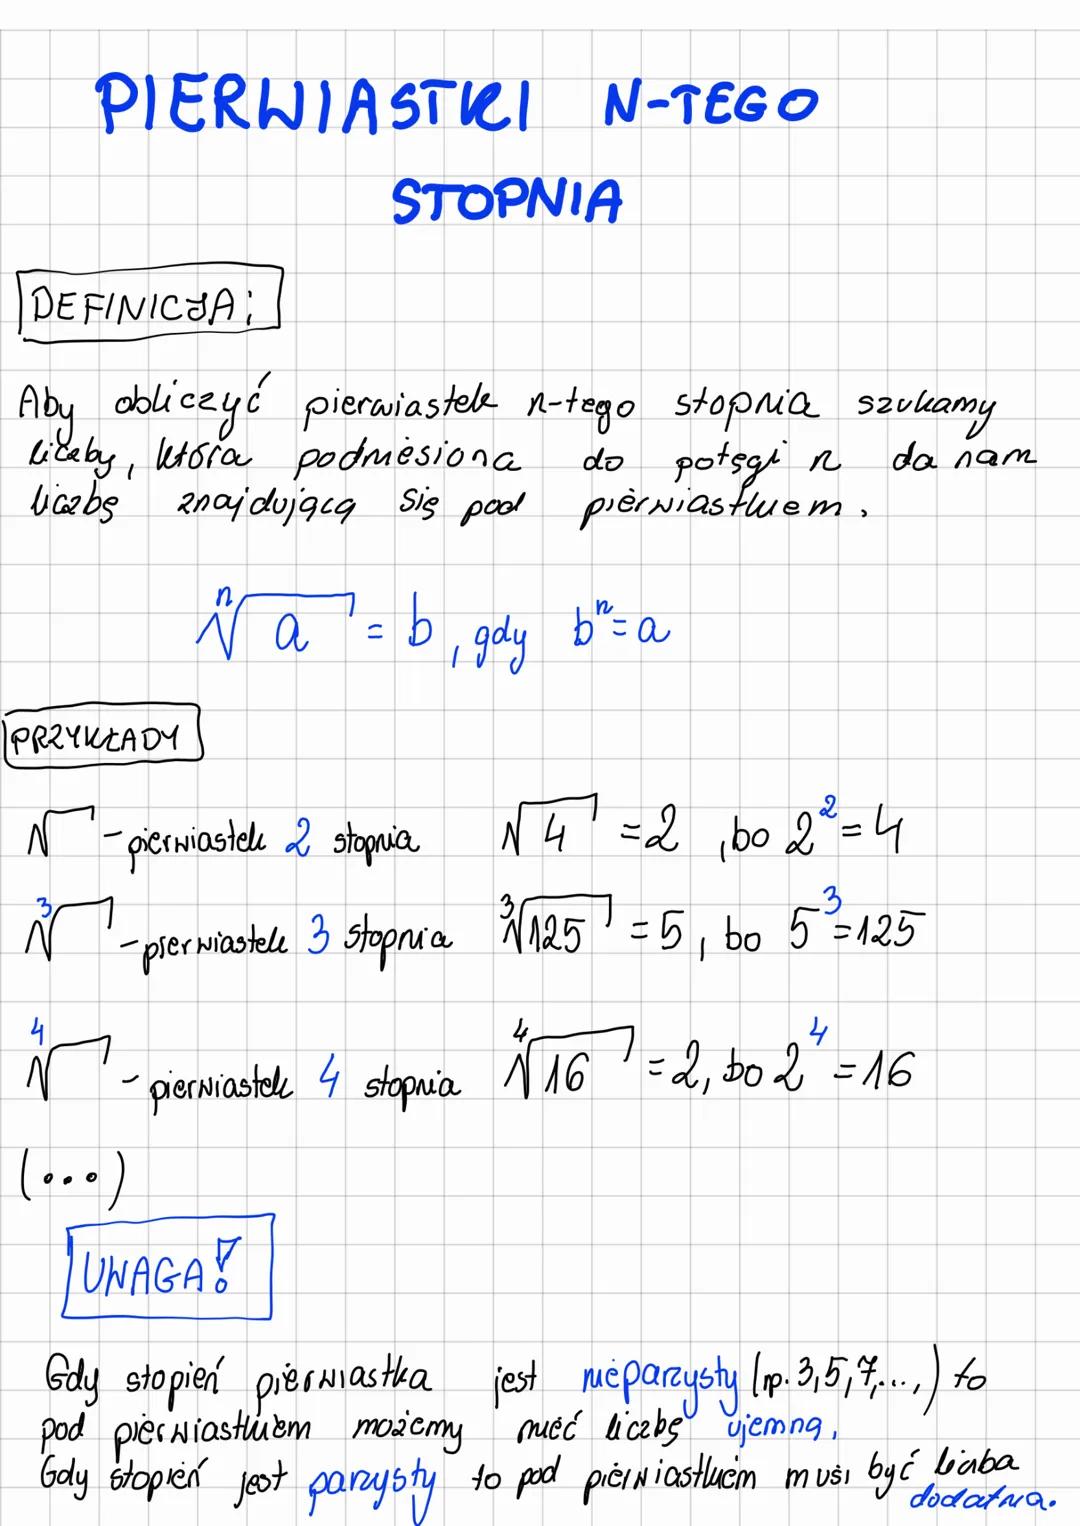 PIERWIASTKI N-TEGO
STOPNIA
DEFINICJA:
Aby obliczyć pierwiastek n-tego stopnia szukamy
liczby, która podniesiona do potęgi n da nam
liczbę znajdującą się pod pierwiastkiem.
ⁿ√a = b, gdy bⁿ = a
PRZYKŁADY
√ - pierwiastek 2 stopnia √4 = 2, bo 2² = 4
³√ - pierwiastek 3 stopnia ³√125 = 5, bo 5³ = 125
⁴√ - pierwiastek 4 stopnia ⁴√16 = 2, bo 2⁴ = 16
(...)
UWAGA!
Gdy stopień pierwiastka jest nieparzysty (np. 3,5,7,...,) to
pod pierwiastkiem możemy mieć liczbę ujemną.
Gdy stopień jest parzysty to pod pierwiastkiem musi być liczba
dodatnia.